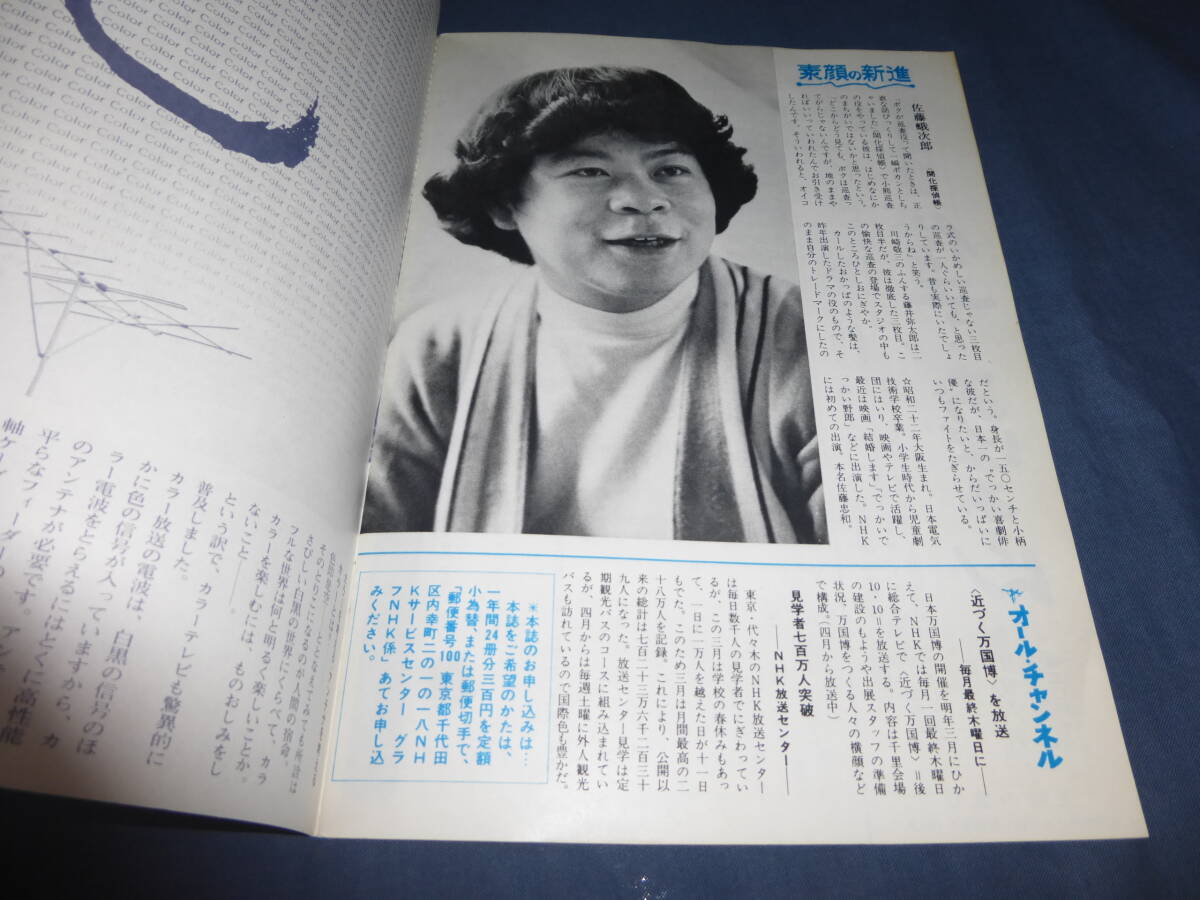 素顔の新進
佐藤蛾次郎
〈開化探偵帳〉
「ボクが巡査役って聞いたときは、正
直な話びっくりして一瞬ポカンとしち
ゃいました」〈開化探偵帳〉で小熊巡査
の役をやっている彼は、はじめなにか
のまちがいではないかと思ったという。
「どこからどう見ても、ボクは巡査っ
てがらじゃないんですが、地のままや
ればいいっていわれたんでお引き受け
したんです。そういわれると、オイコ
ラ式のいかめしい巡査じゃない三枚目
の巡査が一人ぐらいいても、と思った
りしています。昔も実際にいたでしょ
うからね」と笑う。
川崎敬三のふんする藤井弥太郎は二
枚目半だが、彼は徹底した三枚目。こ
の愉快な巡査の登場でスタジオの中も
このところひとしおにぎやか。
カールしたおかっぱのような髪は、
昨年出演したドラマの役のもので、そ
のまま自分のトレードマークにしたの
だという。身長が一五〇センチと小柄
な彼だが、日本一の〝でっかい喜劇俳
優〟になりたいと、からだいっぱいに
いつもファイトをたぎらせている。
☆昭和二十二年大阪生まれ。日本電気
技術学校卒業。小学生時代から児童劇
団にはいり、映画やテレビで活躍し、
最近は映画「結婚します」「でっかいで
っかい野郎」などに出演した。NHK
には初めての出演。本名佐藤忠和。
オール・チャンネル
〈近づく万国博〉を放送
――毎月最終木曜日に――
日本万国博の開催を明年三月にひか
えて、NHKでは毎月一回最終木曜日
に総合テレビで〈近づく万国博〉＝後
10・10＝を放送する。内容は千里会場
の建設のもようや出展スタッフの準備
状況、万国博をつくる人々の横顔など
で構成。（四月から放送中）
見学者七百万人突破
――NHK放送センター――
東京・代々木のNHK放送センター
は毎日数千人の見学者でにぎわってい
るが、この三月は学校の春休みもあっ
て、一日に一万人を越えた日が十一日
もでた。このため三月は月間最高の二
十八万人を記録。これにより、公開以
来の総計は七百二十三万六千二百三十
九人になった。放送センター見学は定
期観光バスのコースに組み込まれてい
るが、四月からは毎週土曜に外人観光
バスも訪れているので国際色も豊かだ。
＊本誌のお申し込みは…
本誌をご希望のかたは、
一年間24冊分三百円を定額
小為替、または郵便切手で、
「郵便番号100 東京都千代田
区内幸町二の一の一八NH
Kサービスセンター グラ
フNHK係」あてお申し込
みください。
さびしい白黒の世界に
フルな世界は何と明るく楽しいことか。
カラーを楽しむには、ものおしみをし
ないこと――。
という訳で、カラーテレビも驚異的に
普及しました。
カラー放送の電波は、白黒の信号のほ
かに色の信号が入っていますから、カ
ラー電波をとらえるにはとくに高性能
のアンテナが必要です。
平らなフィーダーの
軸ケーブ
Color Color Color Color Color Color